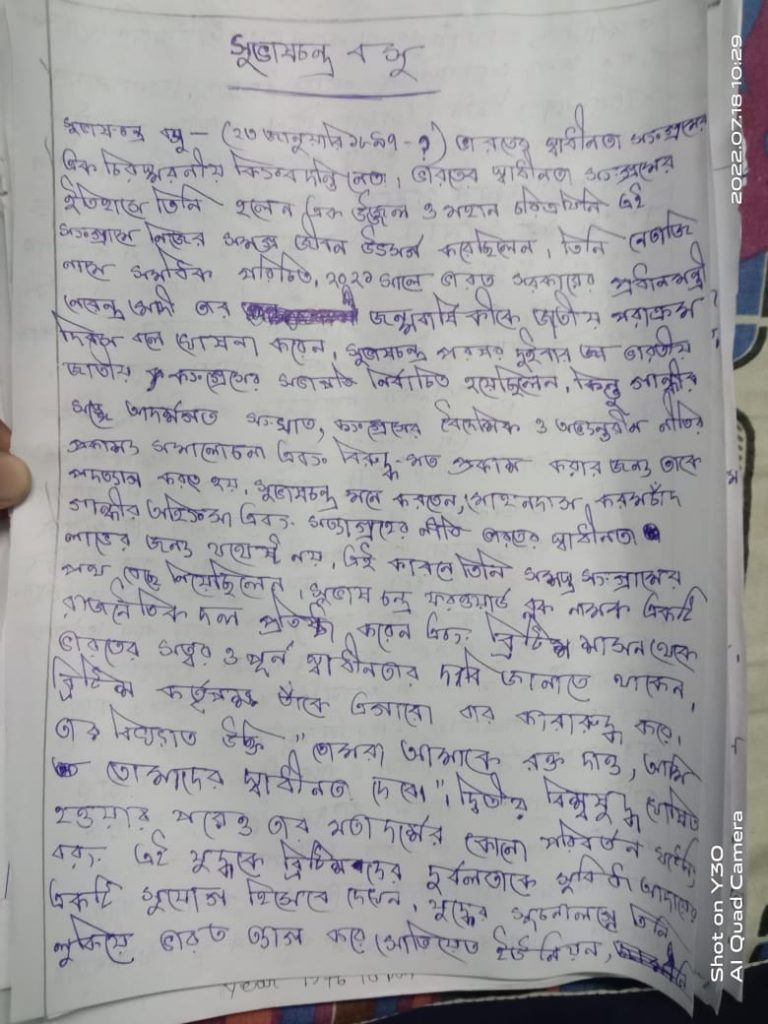 সুভাষচন্দ্র বসু
সুভাষচন্দ্র বসু - (২৩ জানুয়ারি ১৮৯৭ - ?) ভারতের স্বাধীনতা সংগ্রামের
এক চিরস্মরনীয় কিংবদন্তি নেতা, ভারতের স্বাধীনতা সংগ্রামের
ইতিহাসে তিনি হলেন এক উজ্জ্বল ও মহান চরিত্র যিনি এই
সংগ্রামে নিজের সমগ্র জীবন উৎসর্গ করেছিলেন, তিনি নেতাজি
নামে সমধিক পরিচিত, ২০২১ সালে ভারত সরকারের প্রধানমন্ত্রী
নরেন্দ্র মোদী তার জন্মবার্ষিকীকে জাতীয় পরাক্রম
দিবস বলে ঘোষনা করেন, সুভাষচন্দ্র পরপর দুইবার ভারতীয়
জাতীয় কংগ্রেসের সভাপতি নির্বাচিত হয়েছিলেন, কিন্তু গান্ধীর
সঙ্গে আদর্শগত সংঘাত, কংগ্রেসের বৈদেশিক ও অভ্যন্তরীন নীতির
প্রকাশ্য সমালোচনা এবং বিরুদ্ধ-মত প্রকাশ করার জন্য তাকে
পদত্যাগ করতে হয়, সুভাষচন্দ্র মনে করতেন, মোহনদাস করমচাঁদ
গান্ধীর অহিংসা এবং সত্যাগ্রহের নীতি ভারতের স্বাধীনতা
লাভের জন্য যথেষ্ট নয়, এই কারনে তিনি সশস্ত্র সংগ্রামের
পথ বেছে নিয়েছিলেন, সুভাষ চন্দ্র ফরওয়ার্ড ব্লক নামক একটি
রাজনৈতিক দল প্রতিষ্ঠা করেন এবং ব্রিটিশ শাসন থেকে
ভারতের সত্বর ও পূর্ন স্বাধীনতার দাবি জানাতে থাকেন,
ব্রিটিশ কর্তৃপক্ষ তাঁকে এগারো বার কারারুদ্ধ করে,
তার বিখ্যাত উক্তি "তোমরা আমাকে রক্ত দাও, আমি
তোমাদের স্বাধীনতা দেবো", দ্বিতীয় বিশ্বযুদ্ধ ঘোষিত
হওয়ার পরেও তার মতাদর্শের কোনো পরিবর্তন ঘটেনি,
বরং এই যুদ্ধকে ব্রিটিশদের দুর্বলতাকে সুবিধা আদায়ের
একটি সুযোগ হিসেবে দেখেন, যুদ্ধের সূচনালগ্নে তিনি
লুকিয়ে ভারত ত্যাগ করে সোভিয়েত ইউনিয়ন,
2022.07.18 10:29
Shot on Y30
AI Quad Camera